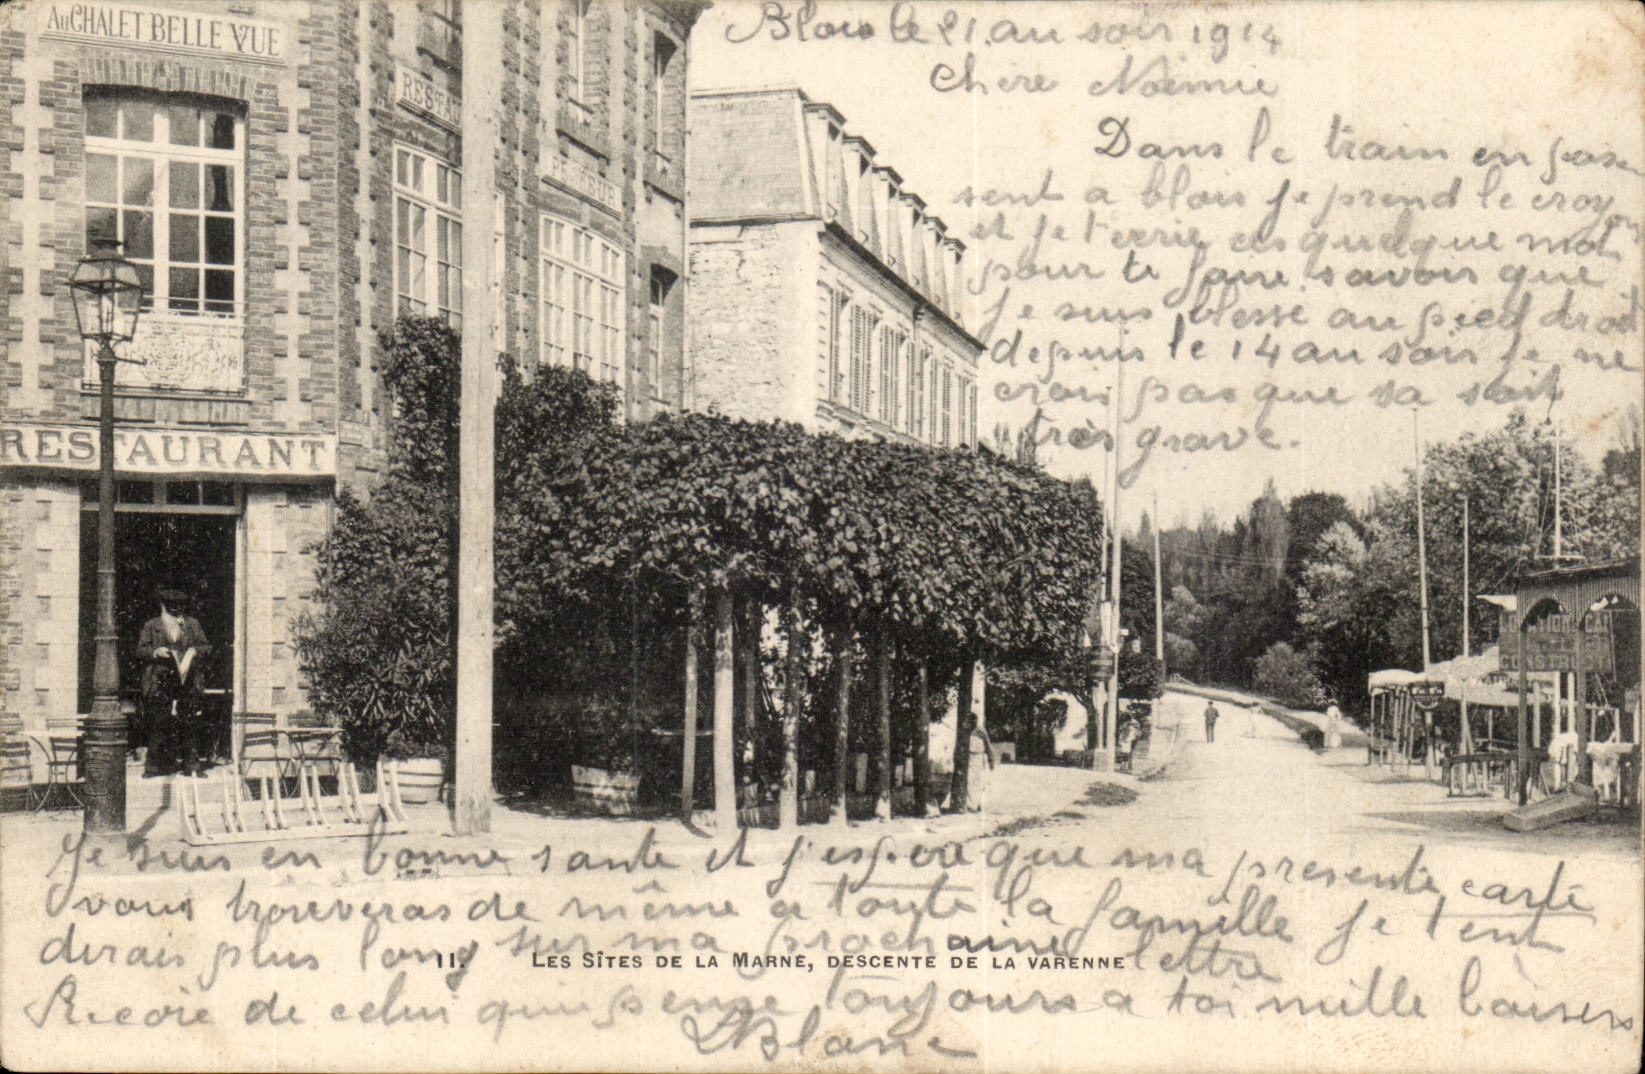 Au CHALET BELLE VUE
RESTAU
RESTAURANT
Blois le 21 au soir 1914
Chere Noémie
Dans le train en pas
sent a blois je prend le crayon
et je t'ecrie ces quelque mot
pour te faire savoir que
je suis blessé au pied droit
depuis le 14 au soir je ne
crois pas que sa soit
très grave.
LOCATION
CONSTRU
Je suis en bonne sante et j'espere que ma presente carte
vous trouveras de même a toute la famille je t'en
dirais plus long sur ma prochaine lettre
11. LES SÎTES DE LA MARNE, DESCENTE DE LA VARENNE
Recoie de celui qui pense toujours a toi mille baisers
Blanc